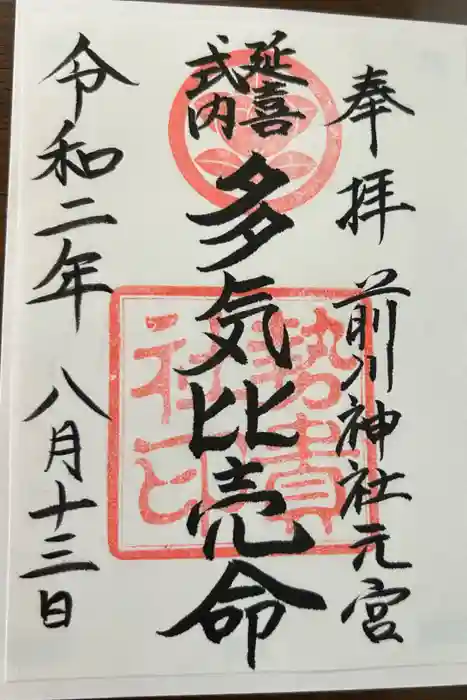 奉拝 前川神社元宮
延喜
式内
多気比売命
令和二年 八月十三日